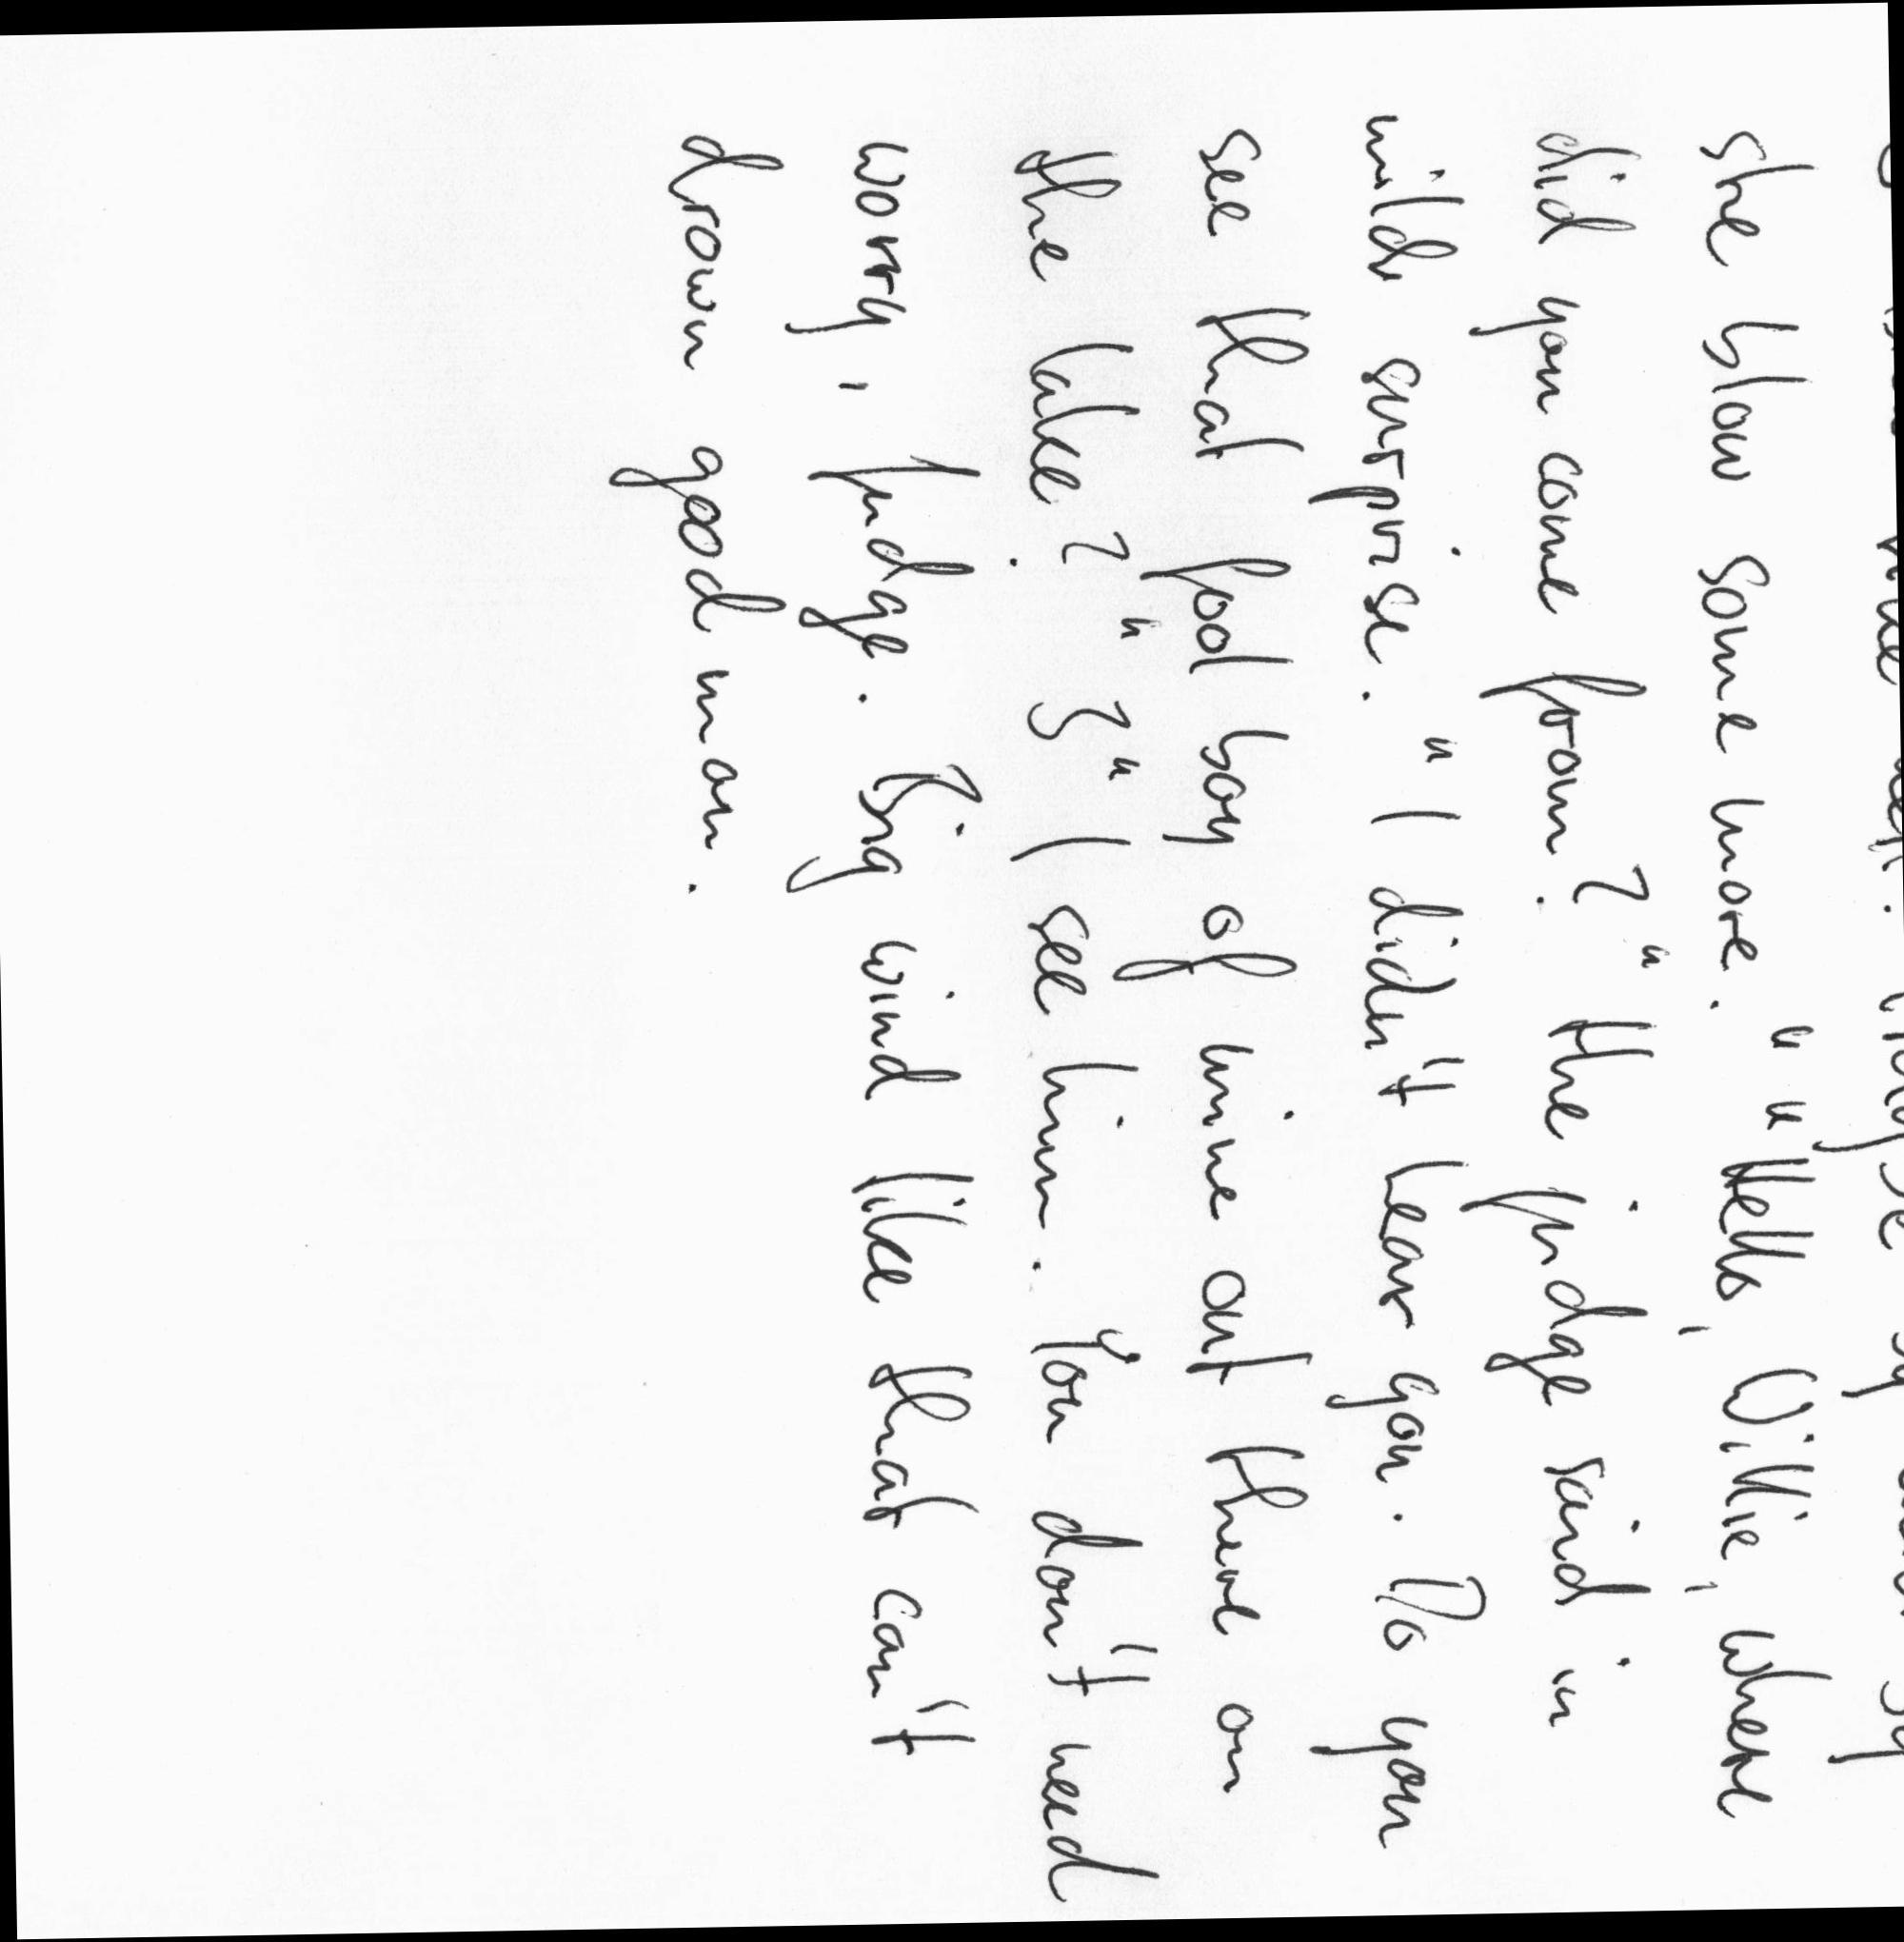 she blow some more. " " Hello, Willie, where
did you come from? " the judge said in
mild surprise. " I didn't hear you. Do you
see that fool boy of mine out there on
the lake? " 3 " I see him. You don't need
worry, Judge. Big wind like that can't
drown good man.